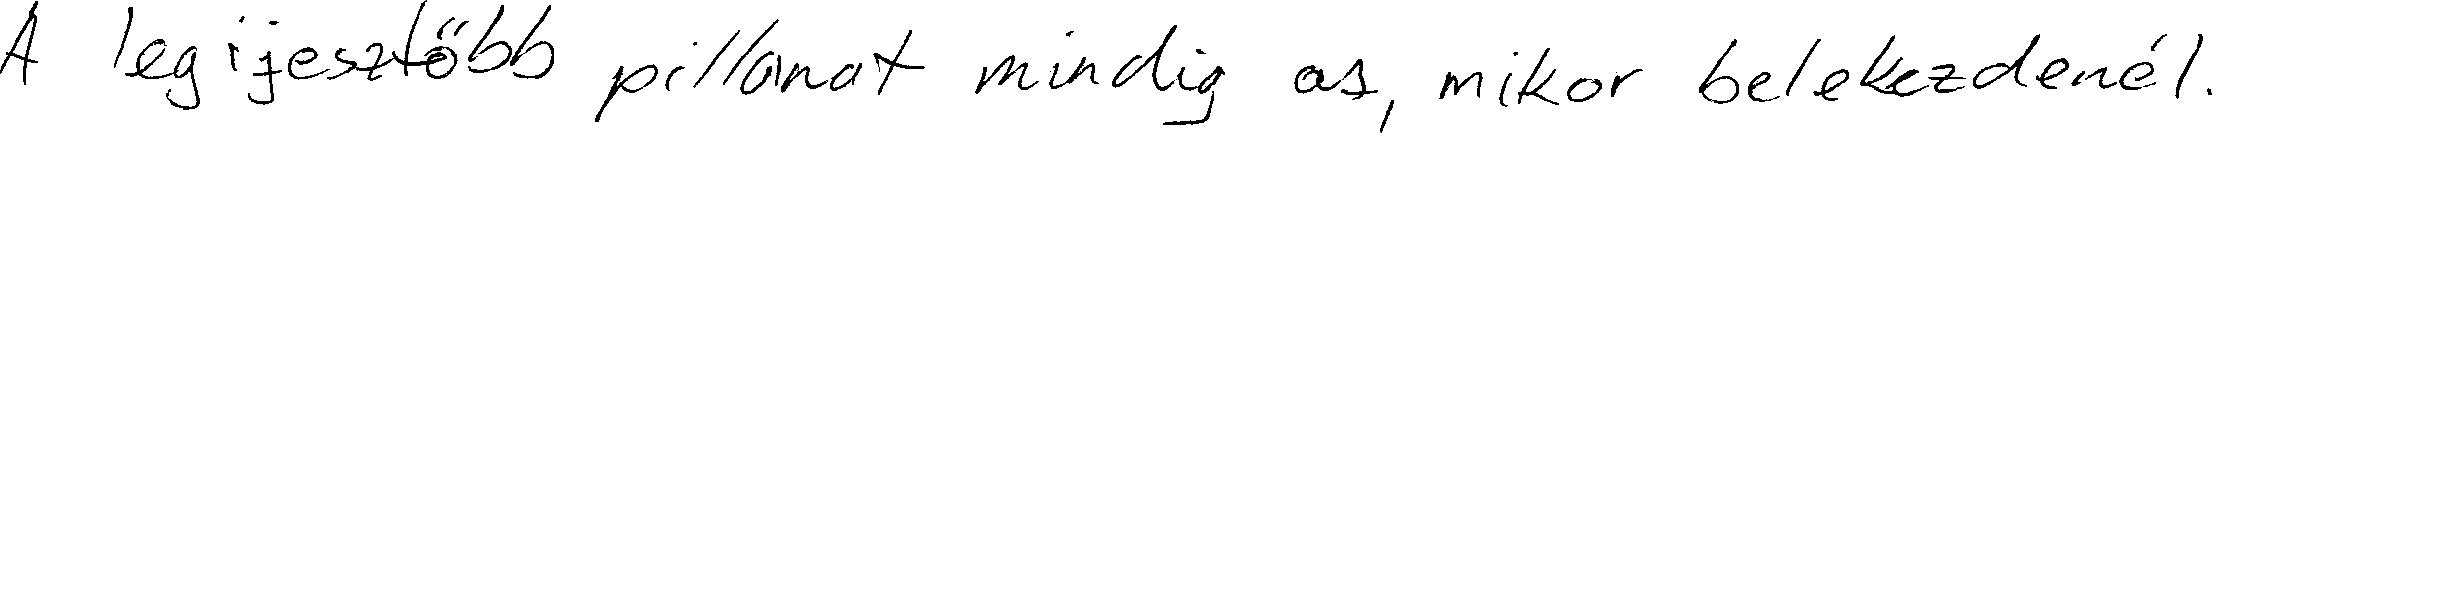 A legijesztőbb pillanat mindig as, mikor belekezdenél.